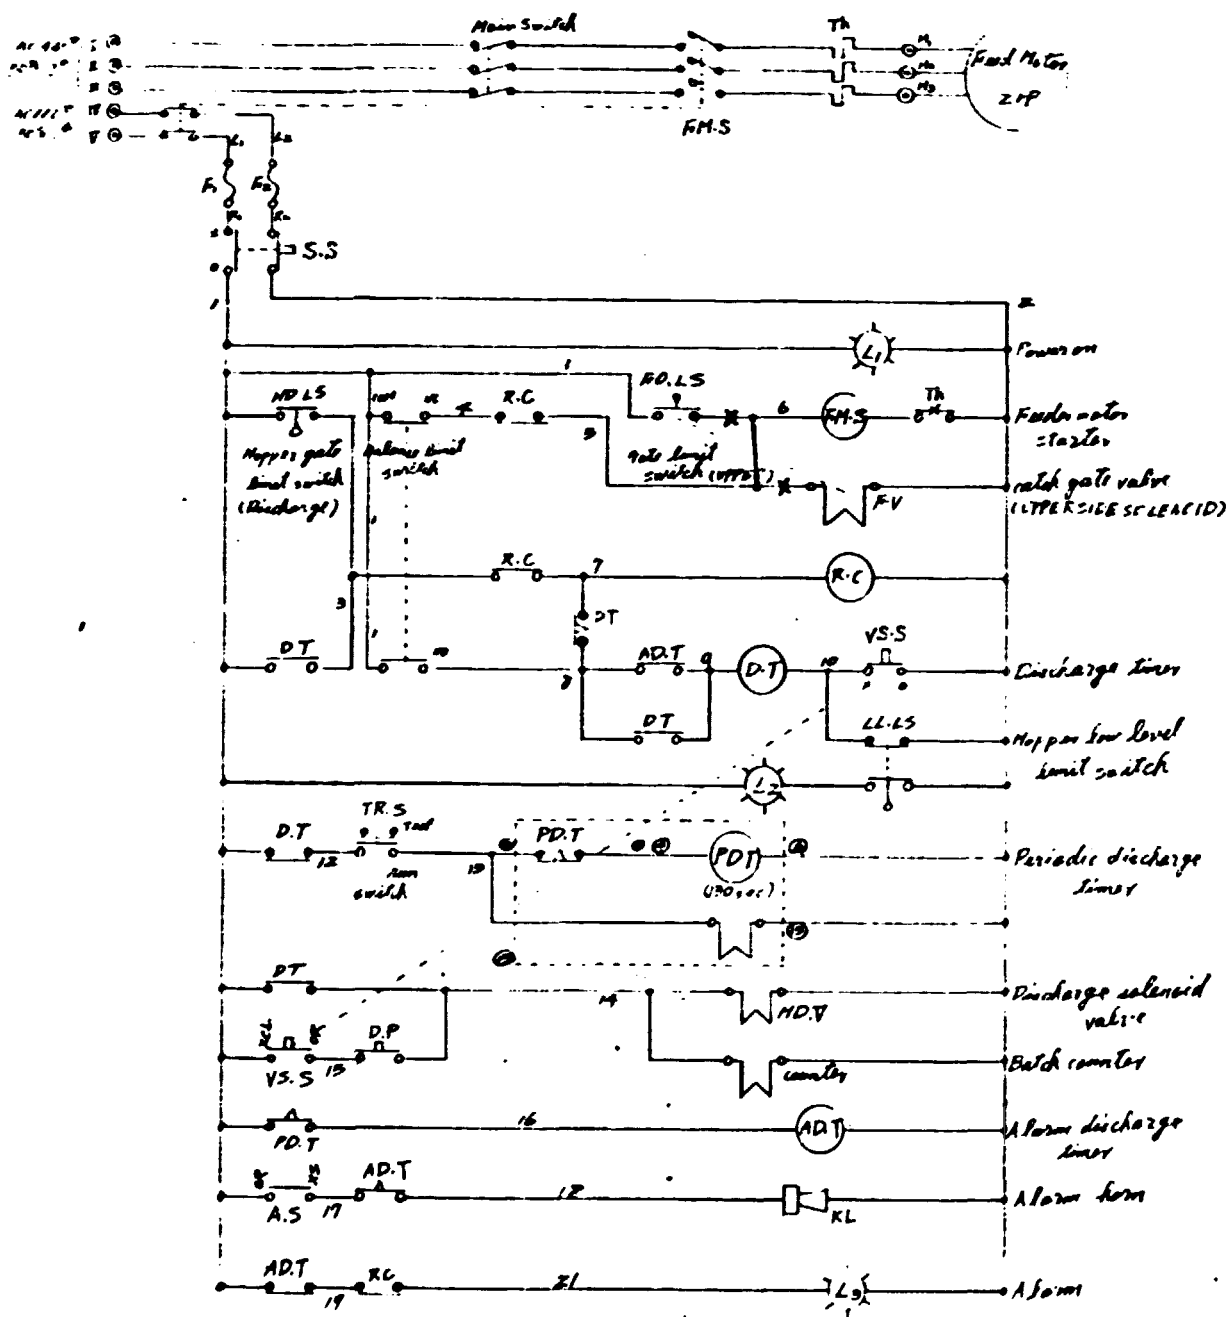 Main Switch
Th
M1
M2
M3
Feed Motor
2HP
F.M.S
L1
L2
F1
F2
R1
R2
S.S
1
2
L1
Power on
1
HD.LS
4
R.C
FO.LS
6
F.M.S
Th
Feeder motor
starter
Hopper gate
limit switch
(Discharge)
Balance limit
switch
5
gate limit
switch (UPPER)
F.V
catch gate valve
(UPPERSIDE SOLENOID)
3
R.C
7
R.C
DT
DT
1
8
AD.T
9
D.T
10
VS.S
Discharge timer
DT
LL.LS
Hopper low level
limit switch
L2
D.T
12
TR.S
Test
Run
switch
13
PD.T
PDT
(130 sec)
Periodic discharge
timer
DT
14
HD.V
Discharge solenoid
valve
VS.S
15
D.P
counter
Batch counter
PD.T
16
AD.T
Alarm discharge
timer
A.S
17
AD.T
KL
Alarm horn
AD.T
19
R.C
21
L3
Alarm